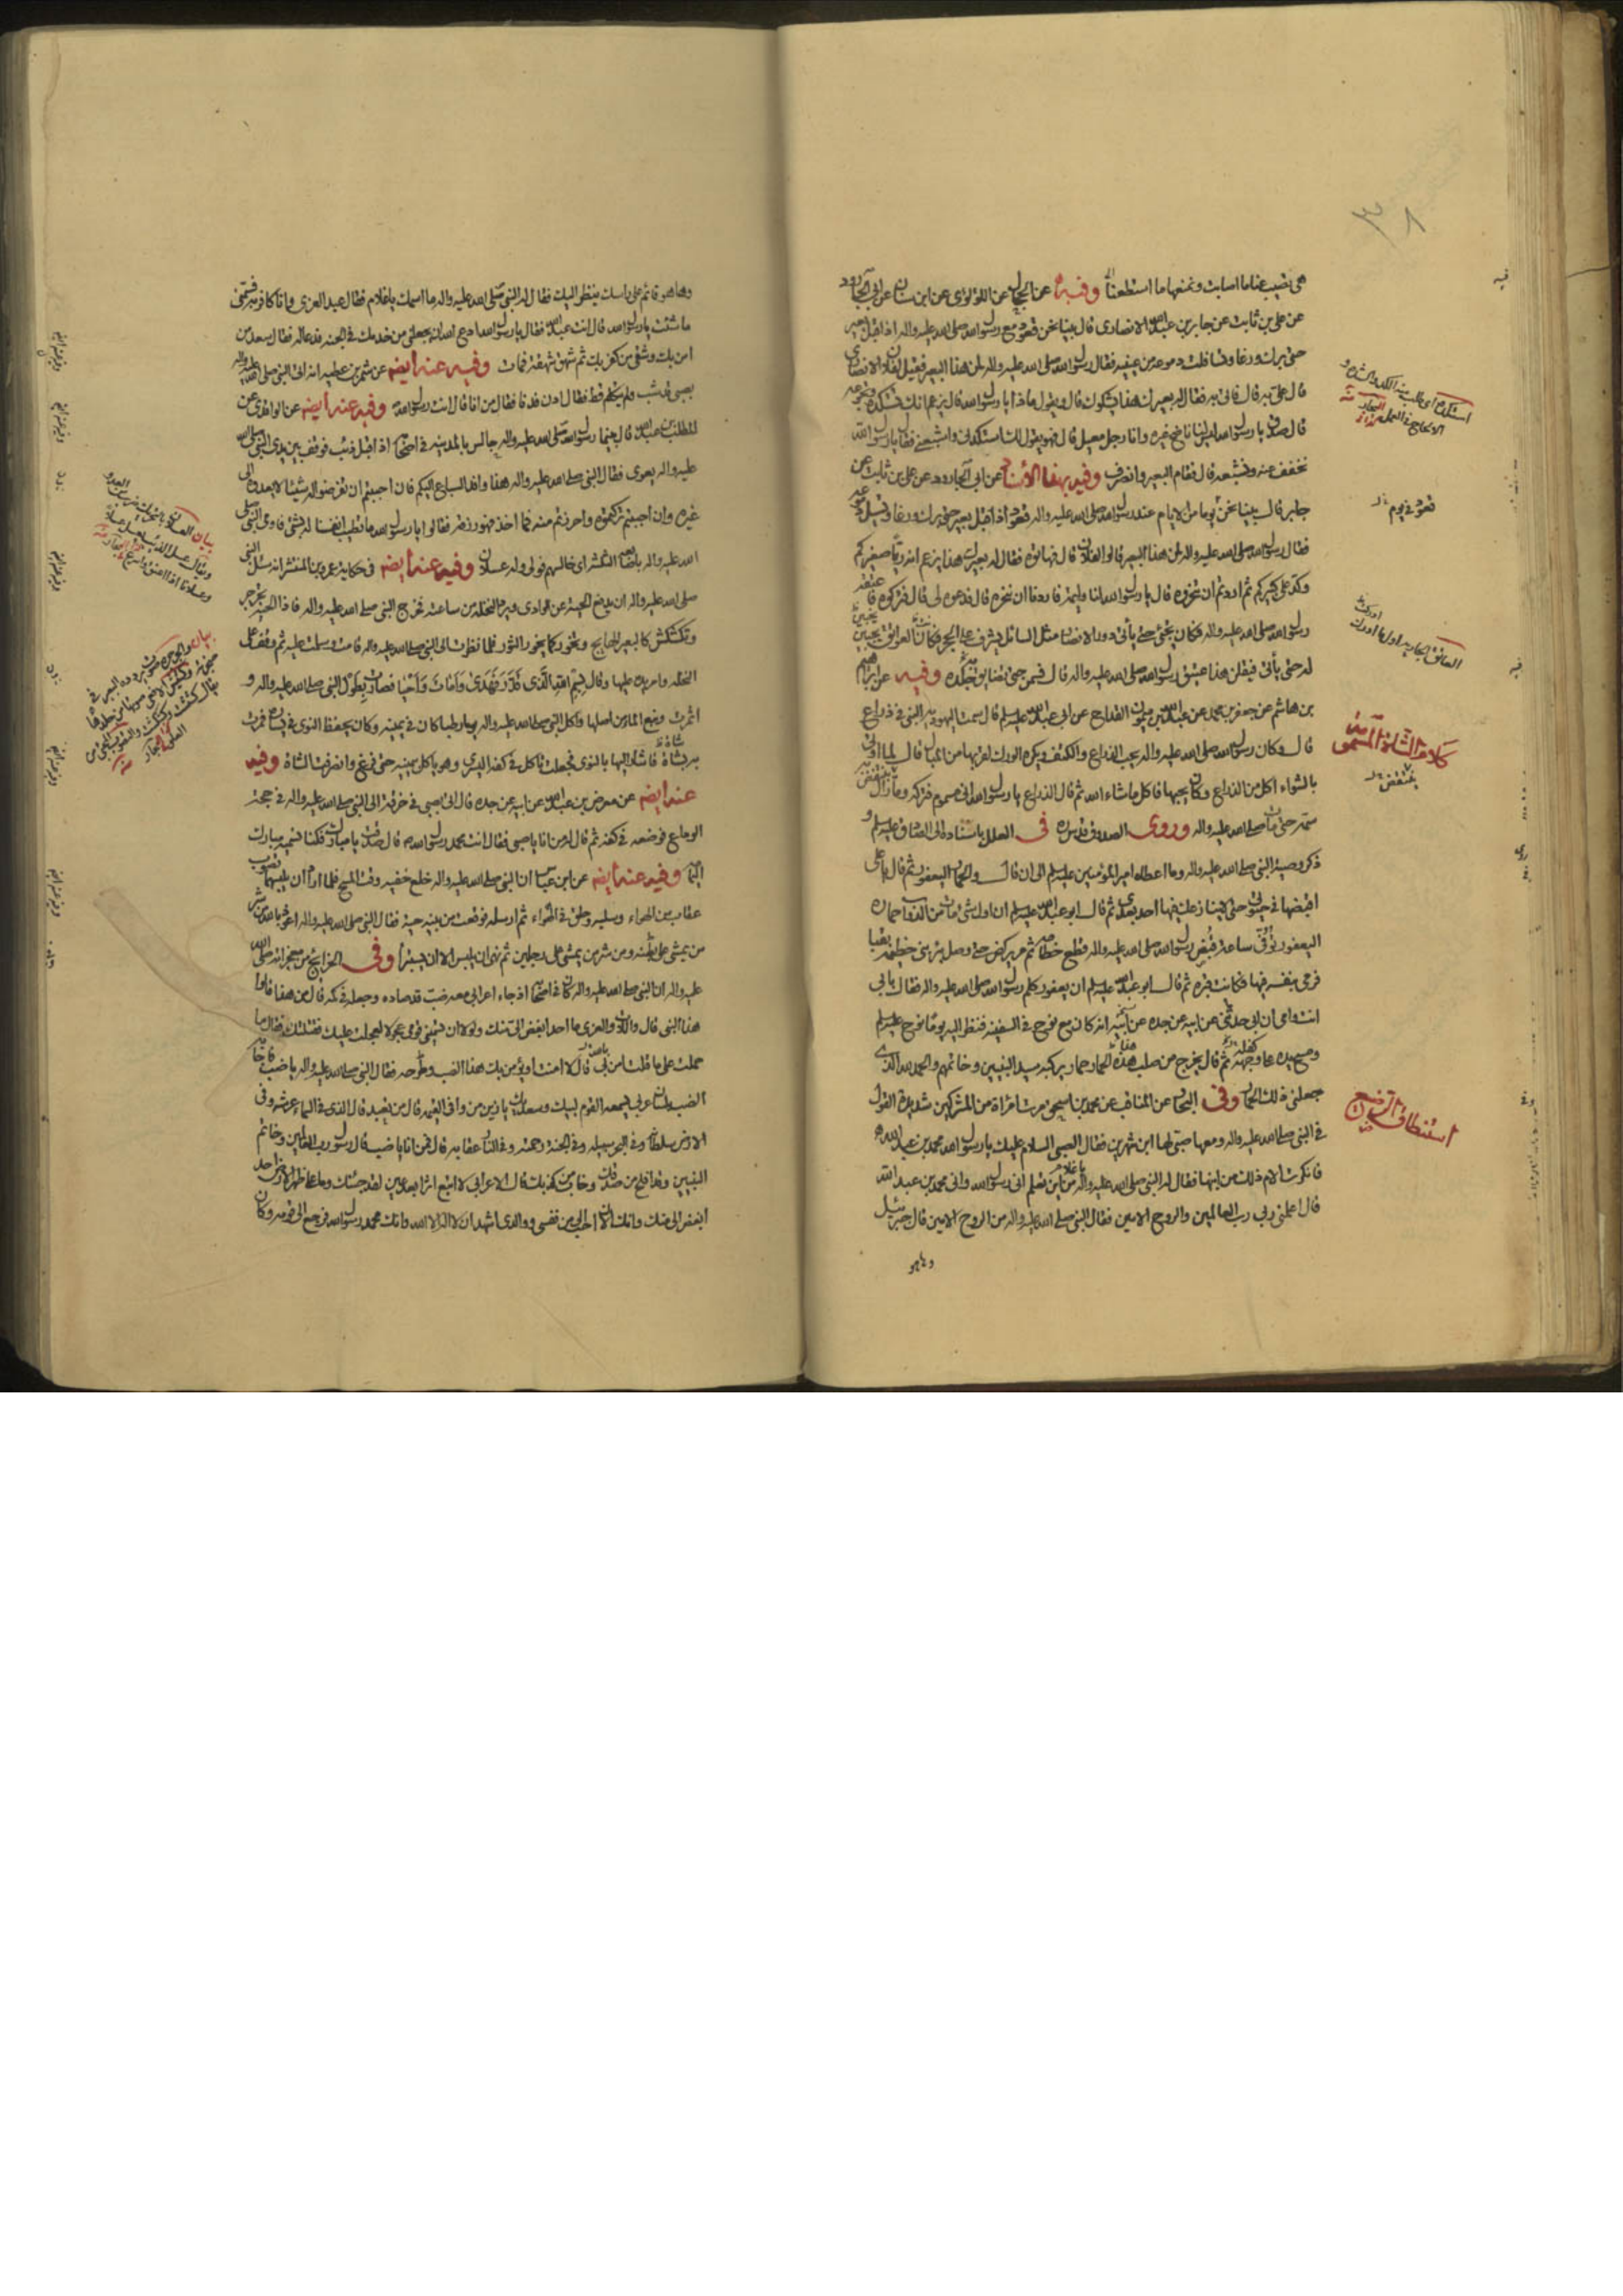 هي نصيب عنا ما اصابت ونمنعها ما استطعنا وفيه عن الحجال عن اللؤلؤي عن ابن سنان عن ابي الجارود
عن علي بن ثابت عن جابر بن عبد الله الانصاري قال بينا نحن قعود مع رسول الله صلى الله عليه واله اذا اقبل بعير
حتى برك ورغا وتسافلت دموعه من عينيه فقال رسول الله صلى الله عليه واله لمن هذا البعير فقيل لفلان الانصاري
قال علي به قال فاتى به فقال له بعيرك هذا يشكوك قال ويقول ماذا يا رسول الله قال يزعم انك تستكده وتجوعه
قال صدق يا رسول الله ليس لنا ناضح غيره وانا رجل معيل قال فهو يقول لك استكدني واشبعني فقال يا رسول الله
نخفف عنه ونشبعه قال فقام البعير وانصرف وفيه بهذا الاسناد عن ابي الجارود عن علي بن ثابت عن
جابر قال بينا نحن يوما من الايام عند رسول الله صلى الله عليه واله قعود اذا اقبل بعير حتى برك ورغا وتسيل دموعه
فقال رسول الله صلى الله عليه واله لمن هذا البعير قالوا لفلان قال فهاتوه فقال له بعيرك هذا يزعم انه ربا صغيركم
وكد على كبيركم ثم اردتم ان تنحروه قال يا رسول الله لنا وليمة فاردنا ان ننحره قال فدعوه لي قال فتركوه فاعتقه
رسول الله صلى الله عليه واله فكان يجئ حتى ياتي دور الانصار مثل السائل يشرف على الحجر فكان العواتق يجبين
له حتى ياتي فيقلن هذا عتيق رسول الله صلى الله عليه واله قال فسمن حتى تضايق جلده وفيه عن ابراهيم
بن هاشم عن جعفر بن محمد عن عبد الله بن ميمون القداح عن ابي عبد الله عليه السلم قال سمت اليهودية النبي في ذراع
قال وكان رسول الله صلى الله عليه واله يحب الذراع والكتف ويكره الورك لقربها من المبال قال لما اوتي
بالشواء اكل من الذراع وكان يحبها فاكل ما شاء الله ثم قال الذراع يا رسول الله اني مسموم فتركه وما زال ينتقض به
سمه حتى مات صلى الله عليه واله وروى الصدوق قدس سره في العلل باسناده الى الصادق عليه السلم و
ذكر وصية النبي صلى الله عليه واله وما اعطاه امير المؤمنين عليه السلم الى ان قال والحمار اليعفور ثم قال يا علي
اقبضها في حيوتي حتى لا ينازعك فيها احد بعدي ثم قال ابو عبد الله عليه السلم ان اول شئ مات من الدواب حماره
اليعفور توفي ساعة قبض رسول الله صلى الله عليه واله قطع خطامه ثم مر يركض حتى وصل بئر بني خطمة بقبا
فرمى بنفسه فيها فكانت قبره ثم قال ابو عبد الله عليه السلم ان يعفور كلم رسول الله صلى الله عليه واله فقال بابي
انت وامي ان ابي حدثني عن ابيه عن جده عن ابيه انه كان مع نوح في السفينة فنظر اليه يوما نوح عليه السلم
ومسح يده على وجهه ثم قال يخرج من صلب هذه الحمار حمار يركبه سيد النبيين وخاتمهم والحمد لله الذي
جعلني ذلك الحمار وفي البحار عن المناقب عن محمد بن اسحق مرت امراة من المشركين شديدة القول
في النبي صلى الله عليه واله ومعها صبي لها ابن شهرين فقال الصبي السلام عليك يا رسول الله محمد بن عبد الله
فانكرت الام ذلك من ابنها فقال له النبي صلى الله عليه واله يا غلام من اين تعلم اني رسول الله واني محمد بن عبد الله
قال اعلمني ربي رب العالمين والروح الامين فقال النبي صلى الله عليه واله من الروح الامين قال جبرئيل
وها هو
كلام الشاة المسمومة
ينتقض
استنطاق الرضيع
وها هو قائم على راسك ينظر اليك فقال له النبي صلى الله عليه واله ما اسمك يا غلام فقال عبد العزى وانا كافر به فسمني
ما شئت يا رسول الله قال انت عبد الله فقال يا رسول الله ادع الله ان يجعلني من خدمك في الجنة فدعا له فقال سعد من
امن بك وشقي من كفر بك ثم شهق شهقة فمات وفيه عنه ايضه عن شمر بن عطية انه اتى النبي صلى الله عليه واله
بصبي قد شب ولم يتكلم قط فقال ادن فدنا فقال من انا قال انت رسول الله وفيه عنه ايضه عن الواقدي عن
المطلب بن عبد الله قال بينما رسول الله صلى الله عليه واله جالس بالمدينة في اصحابه اذ اقبل ذئب فوقف بين يدي النبي صلى الله
عليه واله يعوي فقال النبي صلى الله عليه واله هذا وافد السباع اليكم فان احببتم ان تفرضوا له شيئا لا يعدوه الى
غيره وان احببتم تركتموه واحرزتم منه فما اخذ فهو رزقه فقالوا يا رسول الله ما تطيب انفسنا له بشئ فاومى النبي صلى
الله عليه واله باصابعه الثلاث اي خالسهم فولى وله عسلان وفيه عنه ايضه في حكاية عمرو بن المنتشر انه سئل النبي
صلى الله عليه واله ان يدفع الحية عن الوادي ويرد النخلة من ساعته فخرج النبي صلى الله عليه واله فاذا الحية تجرجر
وتكشكش كالبعير الهايج وتخور كما يخور الثور فلما نظرت الى النبي صلى الله عليه واله قامت وسلمت عليه ثم وقف على
النخلة وامر يده عليها وقال بسم الله الذي قدر فهدى وامات واحيا فصارت بطول النبي صلى الله عليه واله و
اثمرت ونبع الماء من اصلها واكل النبي صلى الله عليه واله يوما رطبا كان في يمينه وكان يحفظ النوى في يساره فمرت
به شاة فاشار اليها بالنوى فجعلت تاكل في كفه اليسرى وهو ياكل بيمينه حتى فرغ وانصرفت الشاة وفيه
عنه ايضه عن معرض بن عبد الله عن ابيه عن جده قال اتى بصبي في خرقة الى النبي صلى الله عليه واله في حجة
الوداع فوضعه في كفه ثم قال له من انا يا صبي فقال انت محمد رسول الله قال صدقت يا مبارك فكنا نسميه مبارك
اليمامة وفيه عنه ايضه عن ابن عباس ان النبي صلى الله عليه واله خلع خفيه وقت المسح فلما اراد ان يلبسهما تصوب
عقاب من الهواء وسلبه وحلق في الهواء ثم ارسله فوقعت من بينه حية فقال النبي صلى الله عليه واله اعوذ بالله من شر
من يمشي على بطنه ومن شر من يمشي على رجلين ثم نهى ان يلبس الا ان يستبرأ وفي الخرايج من معجزاته صلى الله
عليه واله ان النبي صلى الله عليه واله كان في اصحابه اذ جاء اعرابي معه ضب قد صاده وجعله في كمه قال من هذا قالوا
هذا النبي قال واللات والعزى ما احد ابغض الي منك ولولا ان تسميني قومي عجولا لعجلت عليك فقتلتك فقال ما
حملك على ما قلت امن بي قال لا امنت او يؤمن بك هذا الضب وطرحه فقال النبي صلى الله عليه واله يا ضب فاجابه
الضب بلسان عربي يسمعه القوم لبيك وسعديك يا زين من وافى القيمة قال من تعبد قال الذي في السماء عرشه وفي
الارض سلطانه وفي البحر سبيله وفي الجنة رحمته وفي النار عقابه قال فمن انا يا ضب قال رسول رب العالمين وخاتم
النبيين وقد افلح من صدقك وخاب من كذبك قال الاعرابي لا اتبع اثرا بعد عين لقد جئتك وما على ظهر الارض احد
ابغض الي منك وانك الان احب الي من نفسي ووالدي اشهد ان لا اله الا الله وانك محمد رسول الله فرجع الى قومه وكان